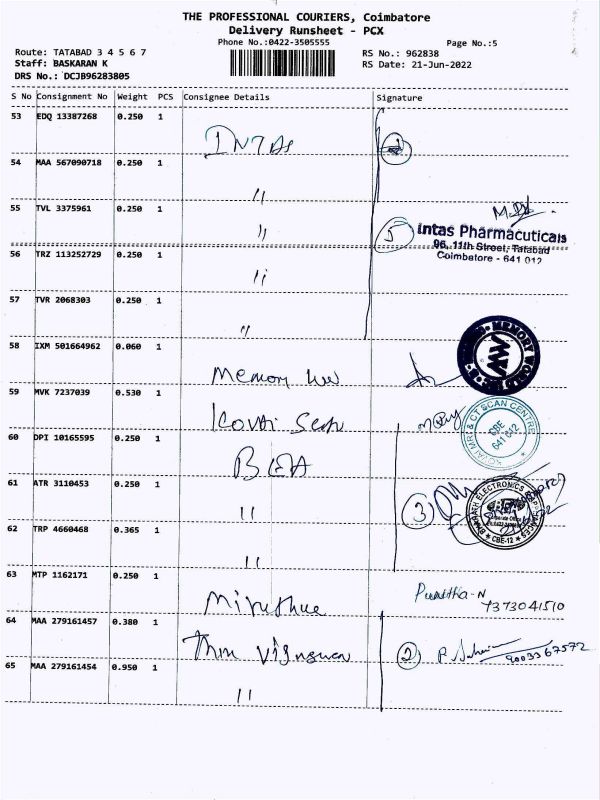 THE PROFESSIONAL COURIERS, Coimbatore
Delivery Runsheet - PCX
Phone No.:0422-3505555
Page No.:5
Route: TATABAD 3 4 5 6 7
RS No.: 962838
Staff: BASKARAN K
RS Date: 21-Jun-2022
DRS No.: DCJB96283805
S No Consignment No Weight PCS Consignee Details Signature
53 EDQ 13387268 0.250 1
INTAS
54 MAA 567090718 0.250 1
"
55 TVL 3375961 0.250 1
"
5
Intas Pharmacuticals
96, 11th Street, Tatabad
Coimbatore - 641 012
56 TRZ 113252729 0.250 1
"
57 TVR 2068303 0.250 1
"
58 IXM 501664962 0.060 1
Memory
MEMORY WORLD
59 MVK 7237039 0.530 1
Kovai Scan
KOVAI MRI & CT SCAN CENTRE
CBE
641 012
60 DPI 10165595 0.250 1
61 ATR 3110453 0.250 1
"
3
BHARATH ELECTRONICS & APPLIANCES
CBE-12
62 TRP 4660468 0.365 1
"
63 MTP 1162171 0.250 1
Punitha-N
7373041510
64 MAA 279161457 0.380 1
2
9003367572
65 MAA 279161454 0.950 1
"